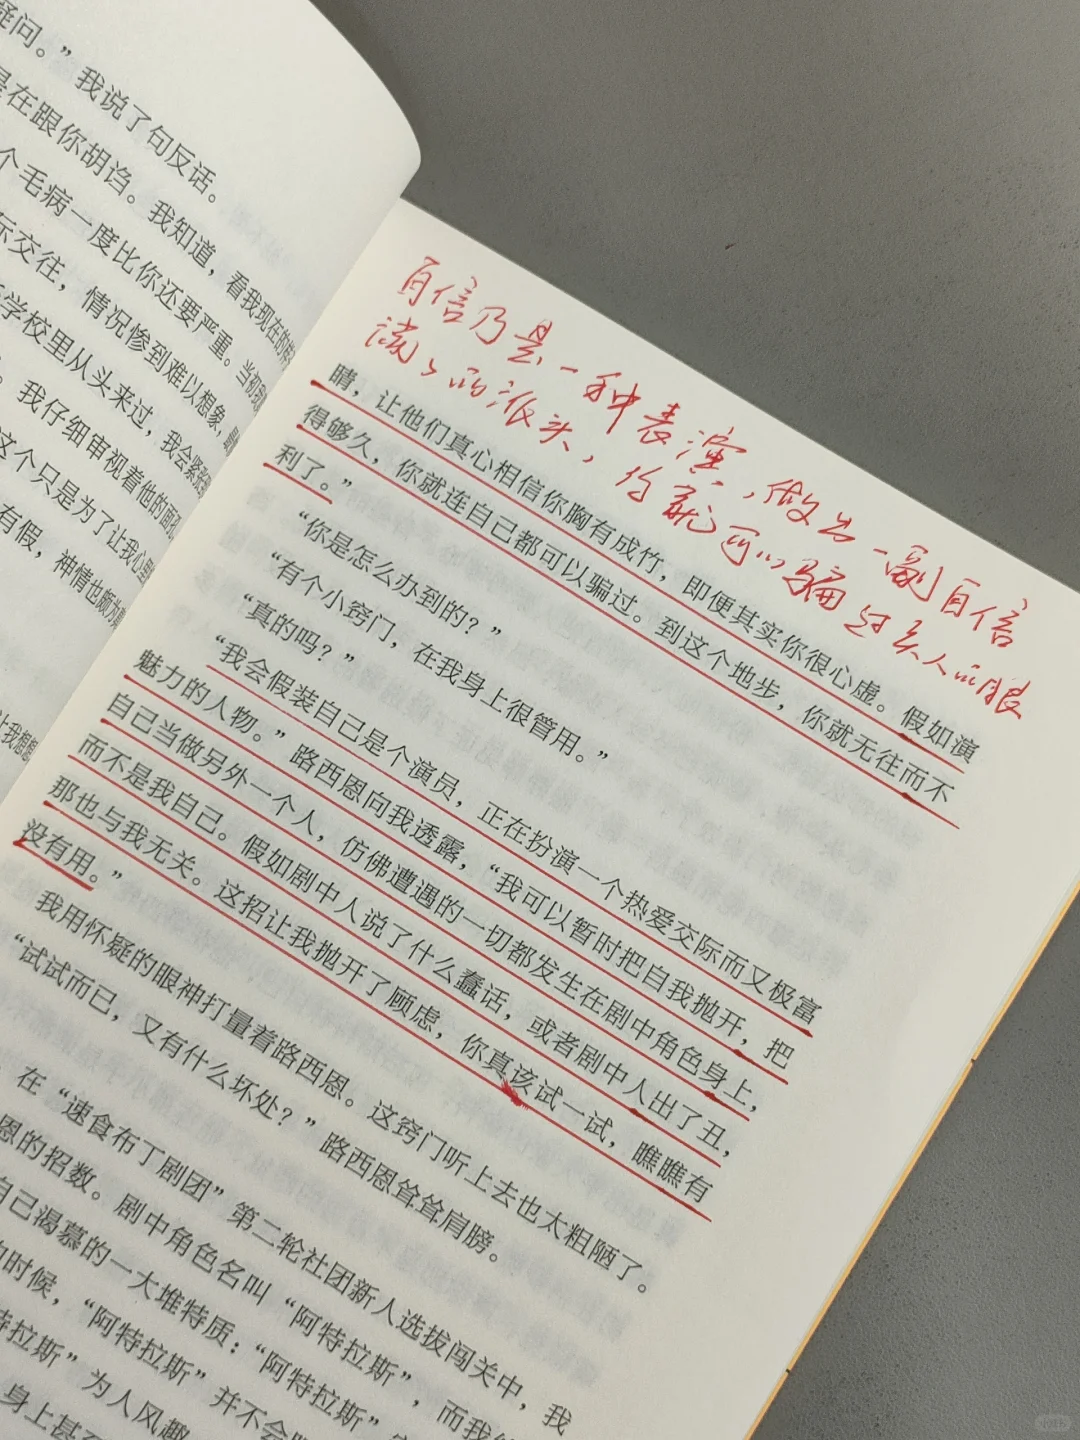 疑问。”我说了句反话。
是在跟你胡诌。我知道，看我现在的样
个毛病一度比你还要严重。当初我
际交往，情况惨到难以想象，
学校里从头来过，我会紧张
。我仔细审视着他的面孔
这个只是为了让我心里
有假，神情也颇为
让我想想
自信乃是一种表演，做出一副自信
满满的派头，你就可以骗过众人的眼
睛，让他们真心相信你胸有成竹，即便其实你很心虚。假如演
得够久，你就连自己都可以骗过。到这个地步，你就无往而不
利了。”
“你是怎么办到的？”
“有个小窍门，在我身上很管用。”
“真的吗？”
“我会假装自己是个演员，正在扮演一个热爱交际而又极富
魅力的人物。”路西恩向我透露，“我可以暂时把自我抛开，把
自己当做另外一个人，仿佛遭遇的一切都发生在剧中角色身上，
而不是我自己。假如剧中人说了什么蠢话，或者剧中人出了丑，
那也与我无关。这招让我抛开了顾虑，你真该试一试，瞧瞧有
没有用。”
我用怀疑的眼神打量着路西恩。这窍门听上去也太粗陋了。
“试试而已，又有什么坏处？”路西恩耸耸肩膀。
，在“速食布丁剧团”第二轮社团新人选拔闯关中，我
恩的招数。剧中角色名叫“阿特拉斯”，而我
自己渴慕的一大堆特质：“阿特拉斯”
的时候，“阿特拉斯”并不会
特拉斯”为人风趣
身上甚至
小红书